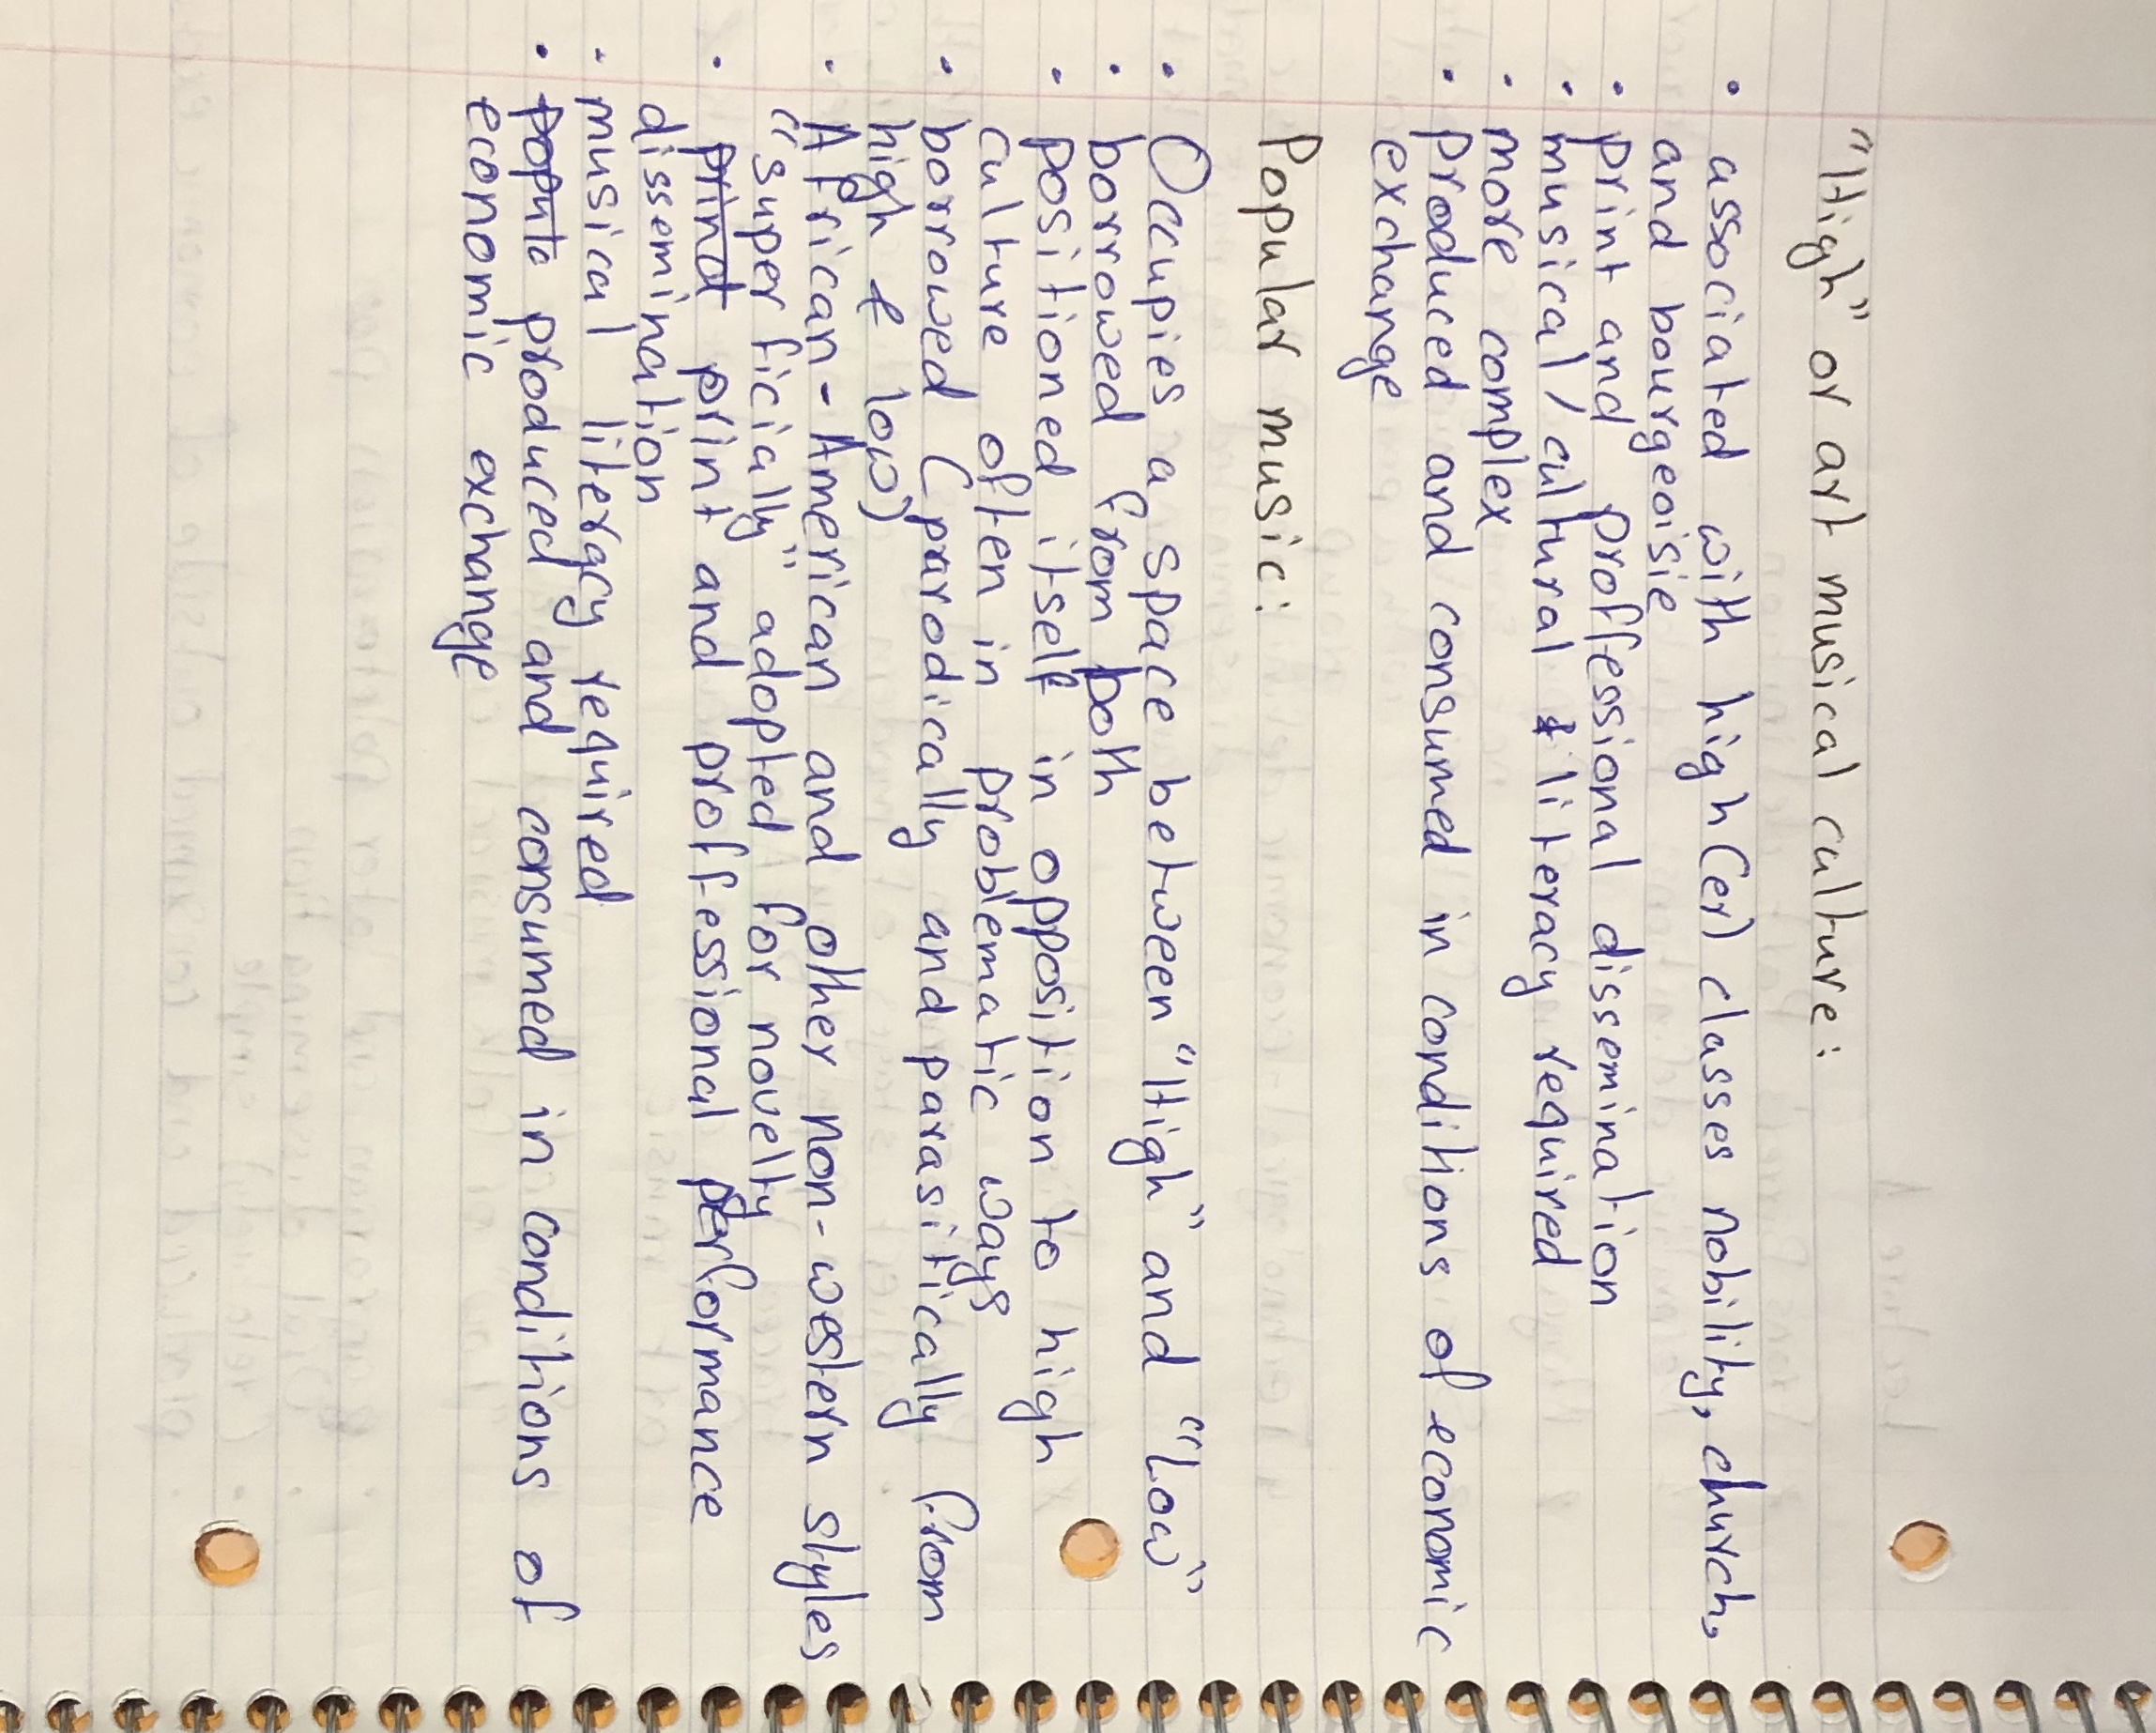 "High" or art musical culture:
• associated with high(er) classes nobility, church,
and bourgeoisie
• print and proffessional dissemination
• musical/cultural literacy required
• more complex
• produced and consumed in conditions of economic
exchange
Popular music:
• Occupies a space between "High" and "Low"
• borrowed from both
• positioned itself in opposition to high
culture often in problematic ways
• borrowed (parodically and parasitically from
high & low)
• African-American and other non-western styles
"superficially" adopted for novelty
• print print and proffessional performance
dissemination
• musical literacy required
• popule produced and consumed in conditions of
economic exchange